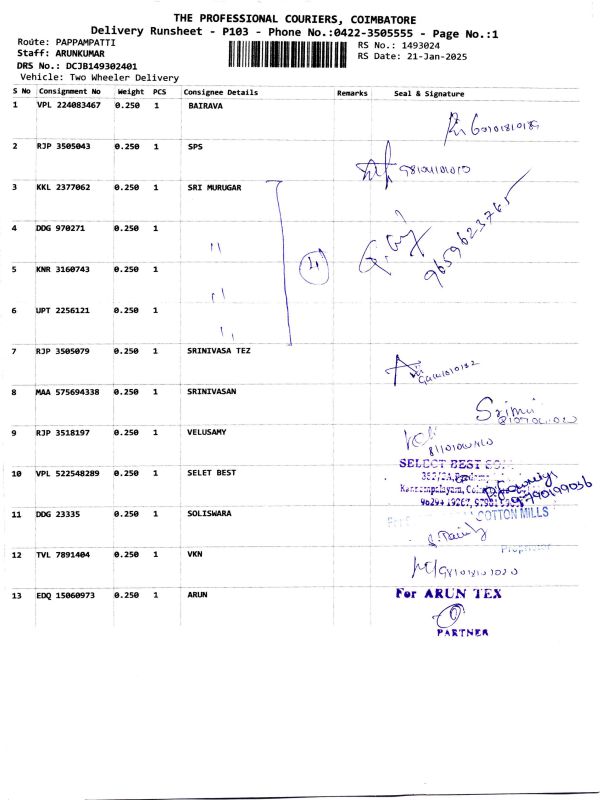 THE PROFESSIONAL COURIERS, COIMBATORE
Delivery Runsheet - P103 - Phone No.:0422-3505555 - Page No.:1
Route: PAPPAMPATTI
RS No.: 1493024
Staff: ARUNKUMAR
RS Date: 21-Jan-2025
DRS No.: DCJB149302401
Vehicle: Two Wheeler Delivery
S No Consignment No Weight PCS Consignee Details Remarks Seal & Signature
1 VPL 224083467 0.250 1 BAIRAVA
2 RJP 3505043 0.250 1 SPS
3 KKL 2377062 0.250 1 SRI MURUGAR
4 DDG 970271 0.250 1 "
9659623765
5 KNR 3160743 0.250 1 "
4
6 UPT 2256121 0.250 1 "
7 RJP 3505079 0.250 1 SRINIVASA TEZ
8 MAA 575694338 0.250 1 SRINIVASAN
9 RJP 3518197 0.250 1 VELUSAMY
SELECT BEST
10 VPL 522548289 0.250 1 SELET BEST
9790199036
11 DDG 23335 0.250 1 SOLISWARA
COTTON MILLS
12 TVL 7891404 0.250 1 VKN
Proprietor
13 EDQ 15060973 0.250 1 ARUN
For ARUN TEX
PARTNER